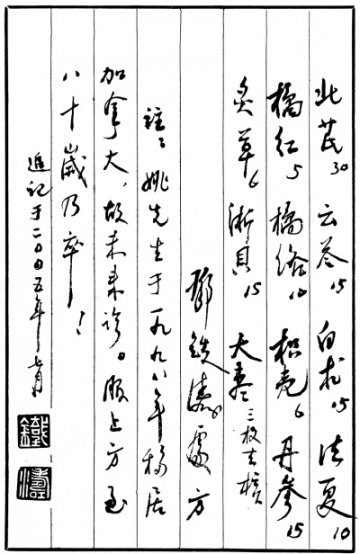 北芪30 云苓15 白术15 法夏10
橘红5 橘络10 枳壳6 丹参15
炙草6 浙贝15 大枣三枚去核
鄧鉄濤處方
註:姚先生于一九九八年移居
加拿大,故未来诊。服上方至
八十歲乃卒!
追记于二〇〇五年七月
鐵濤